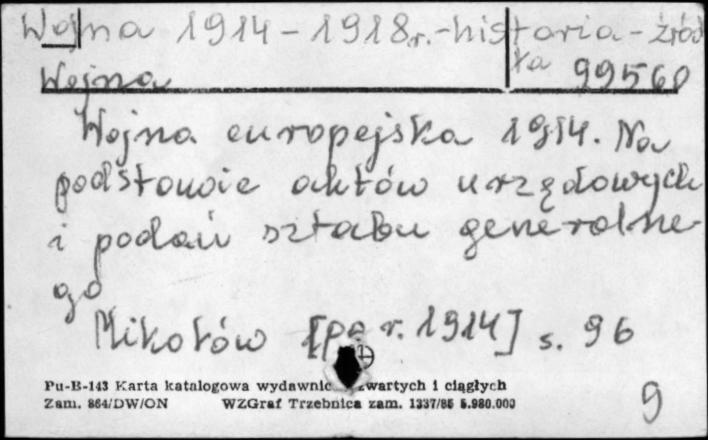 Wojna 1914-1918r.-historia-źród
ła
Wojna 99560
Wojna europejska 1914. Na
podstawie aktów urzędowych
i podań sztabu generalne-
go
Mikołów [po r. 1914] s. 96
Pu-B-143 Karta katalogowa wydawnic zwartych i ciągłych
Zam. 864/DW/ON WZGraf Trzebnica zam. 1337/85 5.980.000
9